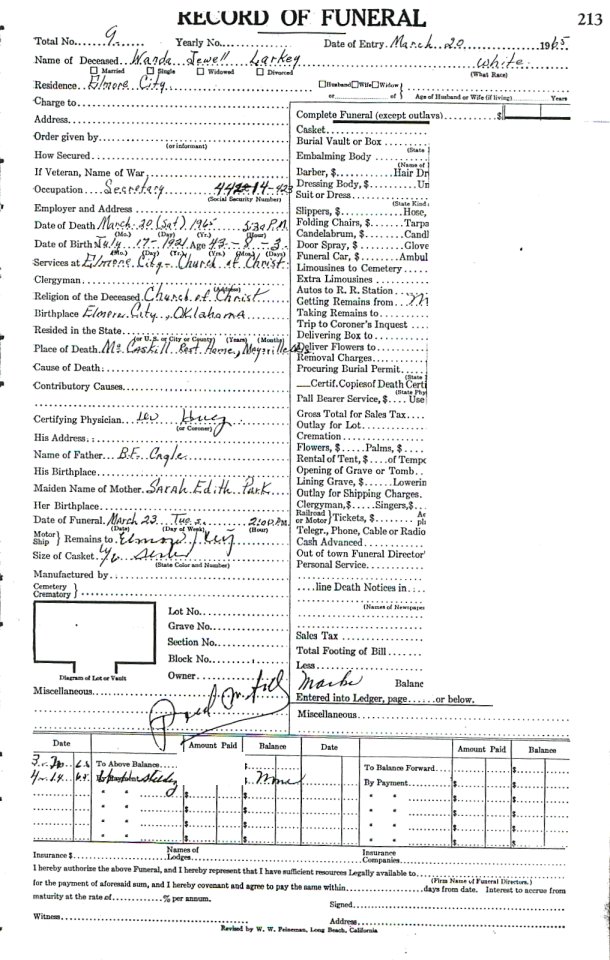 RECORD OF FUNERAL
213
Total No. 9 Yearly No. Date of Entry March 20 1965
Name of Deceased Wanda Jewell Larkey white
☐ Married ☐ Single ☐ Widowed ☐ Divorced (What Race)
Residence Elmore City ☐Husband☐Wife☐Widow
or of Age of Husband or Wife (if living) Years
Charge to
Address
Order given by
(or informant)
How Secured
If Veteran, Name of War
Occupation Secretary
(Social Security Number)
Employer and Address
Date of Death March 20 (Sat) 1965 5:30 P.M.
(Mo.) (Day) (Yr.) (Hour)
Date of Birth July 17-1921 Age 43-8-3
(Mo.) (Day) (Yr.) (Yrs.) (Mos.) (Days)
Services at Elmore City - Church of Christ
Clergyman
(Address)
Religion of the Deceased Church of Christ
Birthplace Elmore City, Oklahoma
Resided in the State
(or U. S. or City or County) (Years) (Months)
Place of Death McCaskill Rest Home, Maysville
Cause of Death:
Contributory Causes
Certifying Physician
(or Coroner)
His Address:
Name of Father B.F. Cagle
His Birthplace
Maiden Name of Mother Sarah Edith Park
Her Birthplace
Date of Funeral March 23 Tues. 2:00 P.M.
(Date) (Day of Week) (Hour)
Motor Ship } Remains to Elmore City
Size of Casket
(State Color and Number)
Manufactured by
Cemetery Crematory }
Lot No.
Grave No.
Section No.
Block No.
Owner
Diagram of Lot or Vault
Miscellaneous
Complete Funeral (except outlays) $
Casket
Burial Vault or Box
(State
Embalming Body
(Name of
Barber, $ Hair Dr
Dressing Body, $ Un
Suit or Dress
(State Kind
Slippers, $ Hose,
Folding Chairs, $ Tarpa
Candelabrum, $ Candl
Door Spray, $ Glove
Funeral Car, $ Ambul
Limousines to Cemetery
Extra Limousines
Autos to R. R. Station
Getting Remains from
Taking Remains to
Trip to Coroner's Inquest
Delivering Box to
Deliver Flowers to
Removal Charges
Procuring Burial Permit
(State
Certif. Copies of Death Certi
(State Phy
Pall Bearer Service, $ Use
Gross Total for Sales Tax
Outlay for Lot
Cremation
Flowers, $ Palms, $
Rental of Tent, $ of Tempo
Opening of Grave or Tomb
Lining Grave, $ Lowerin
Outlay for Shipping Charges
Clergyman, $ Singers, $
Railroad or Motor } Tickets, $
Telegr., Phone, Cable or Radio
Cash Advanced
Out of town Funeral Director'
Personal Service
line Death Notices in
(Names of Newspaper
Sales Tax
Total Footing of Bill
Less
Balanc
Entered into Ledger, page or below.
Miscellaneous
Date Amount Paid Balance Date Amount Paid Balance
To Above Balance $ To Balance Forward $
None By Payment $
" " $ " " $
" " $ " " $
" " $ " " $
Insurance $ Names of Lodges Insurance Companies
I hereby authorize the above Funeral, and I hereby represent that I have sufficient resources Legally available to
(Firm Name of Funeral Directors.)
for the payment of aforesaid sum, and I hereby covenant and agree to pay the same within days from date. Interest to accrue from
maturity at the rate of % per annum. Signed
Witness Address
Revised by W. W. Feineman, Long Beach, California